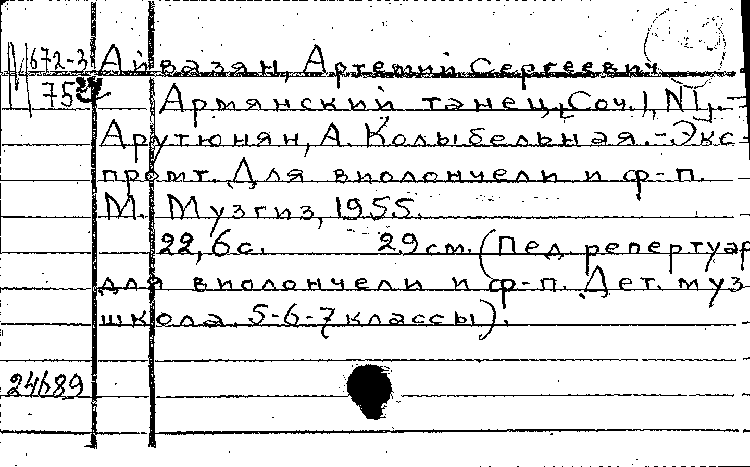 М 672-3
75
Айвазян, Артемий Сергеевич
Армянский танец, Соч. 1, N1.-
Арутюнян, А. Колыбельная.- Экс-
промт. Для виолончели и ф-п.
М. Музгиз, 1955.
22, 6 с. 29 см. (Пед. репертуар
для виолончели и ф-п. Дет. муз
школа. 5-6-7 классы).
24689